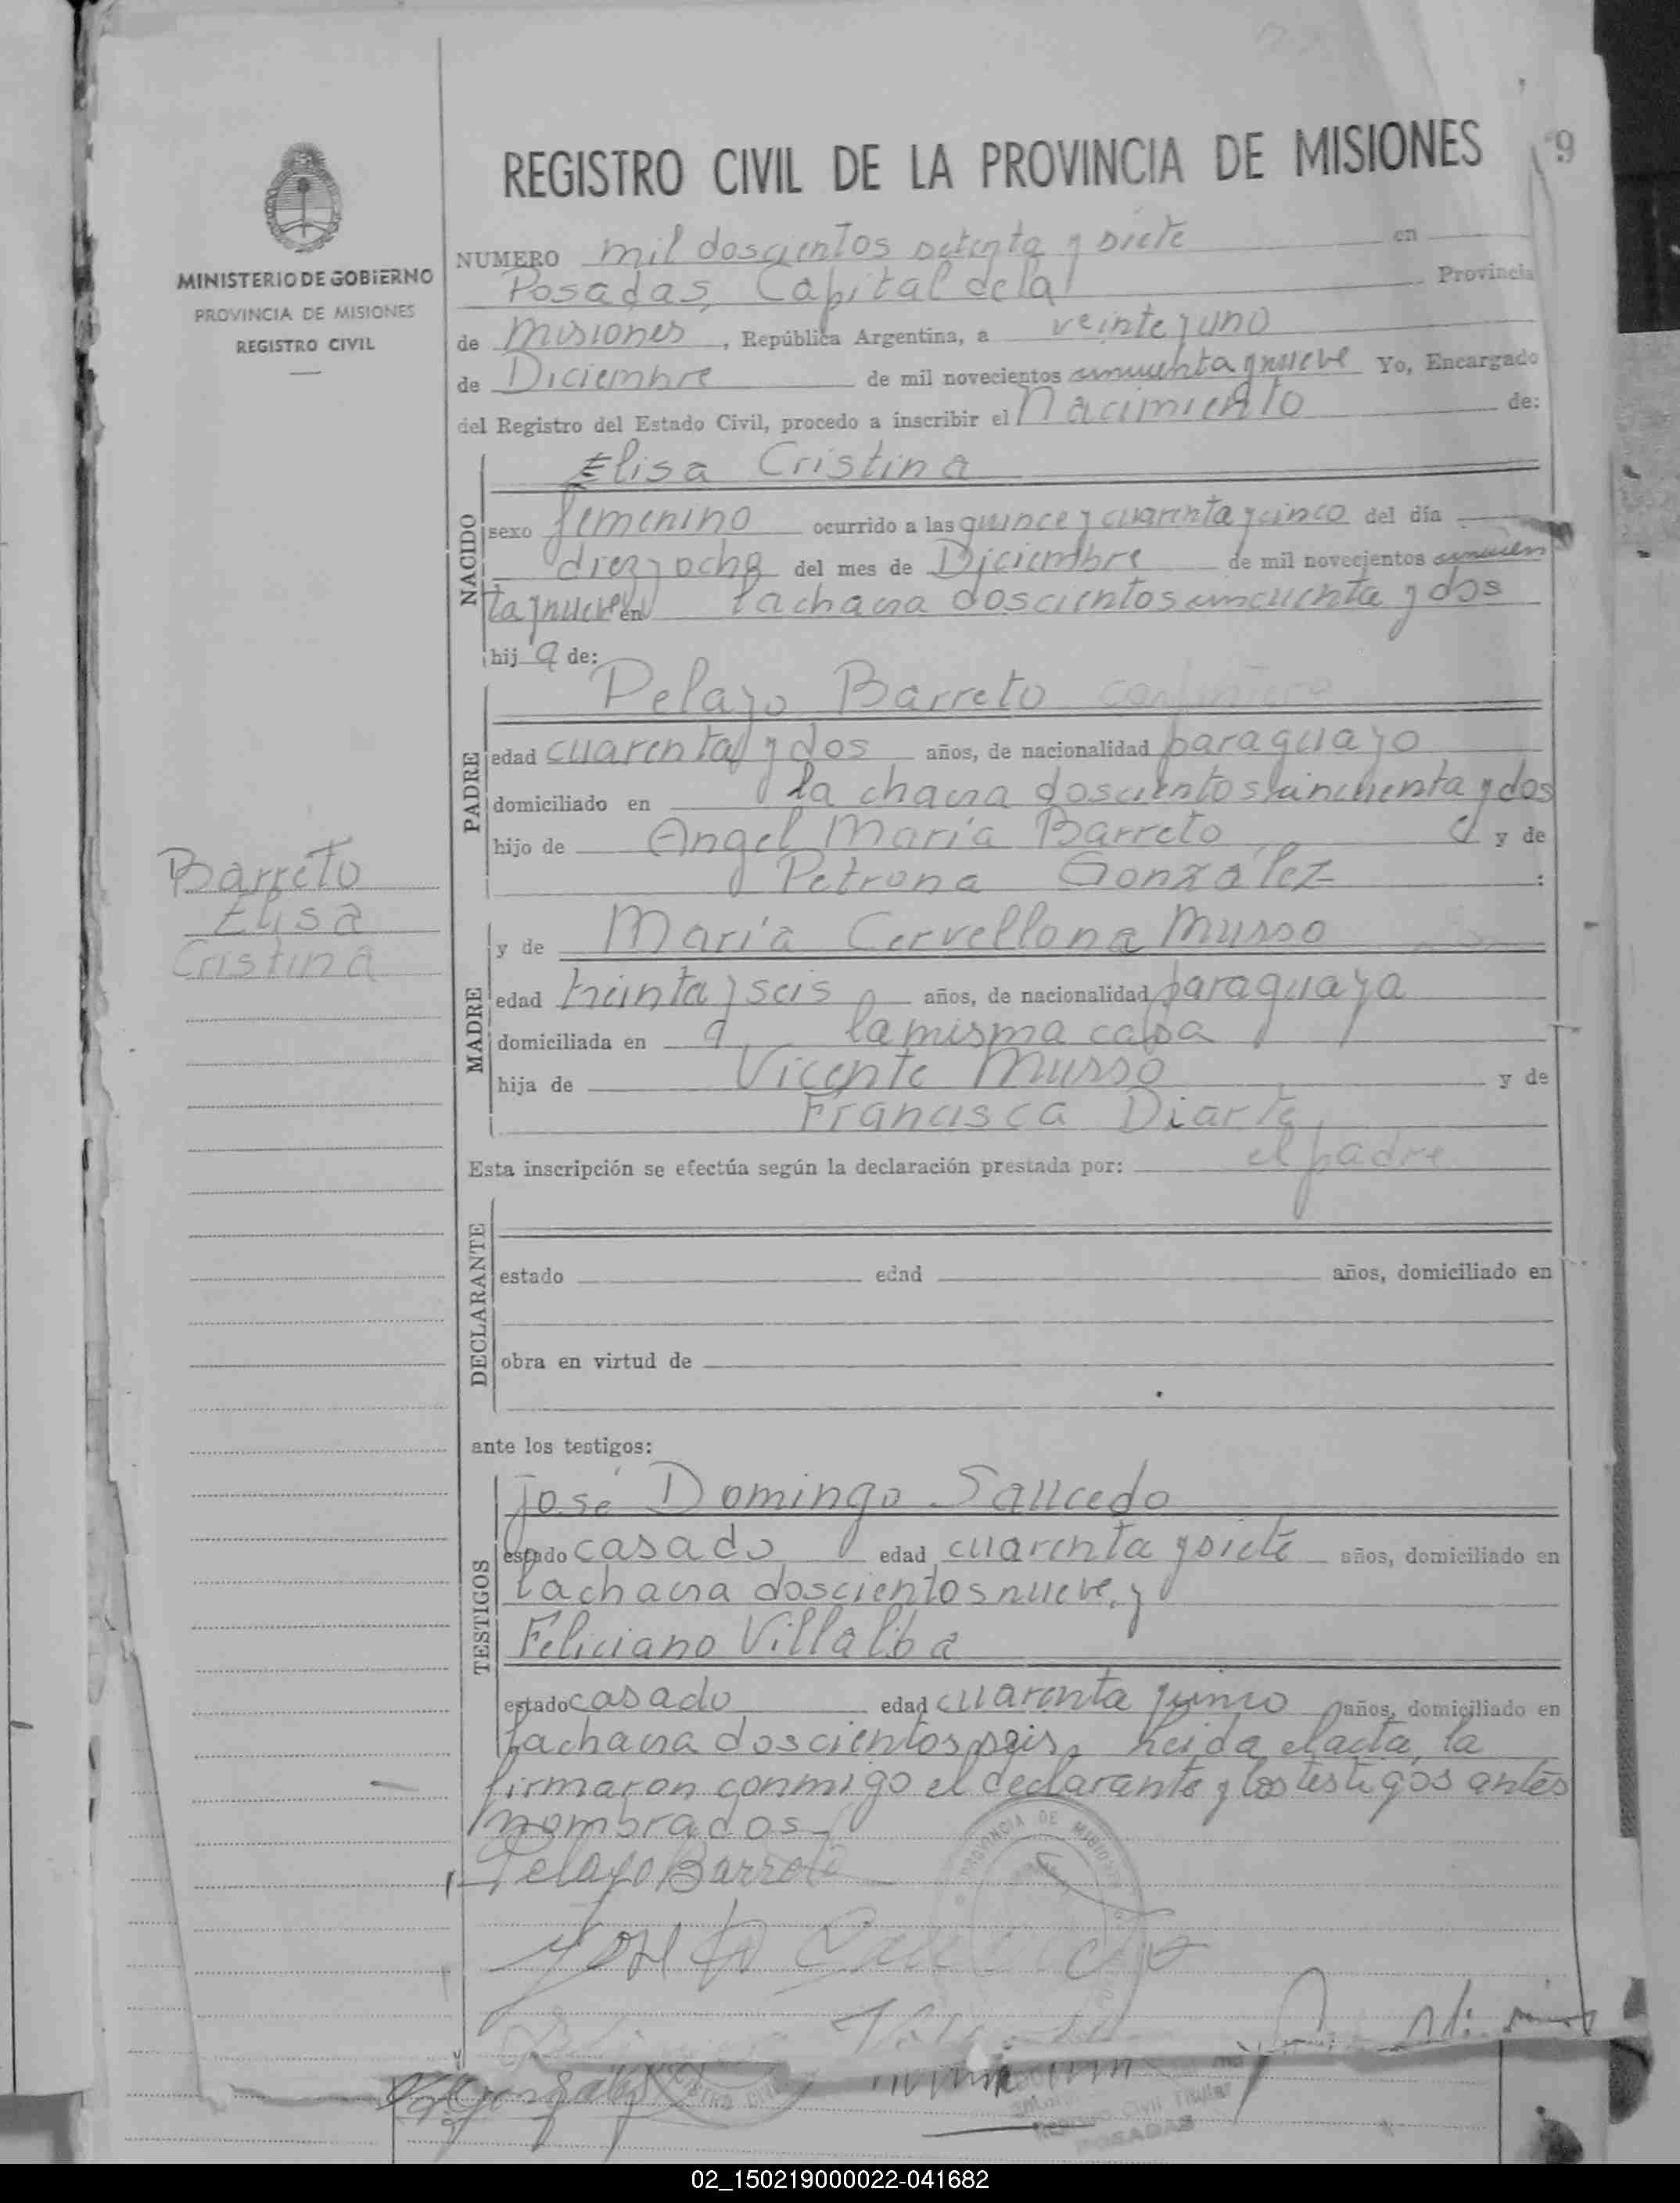 REGISTRO CIVIL DE LA PROVINCIA DE MISIONES
9
MINISTERIO DE GOBIERNO
PROVINCIA DE MISIONES
REGISTRO CIVIL
NUMERO mil doscientos setenta y siete en
Posadas, Capital de la Provincia
de Misiones, República Argentina, a veinte y uno
de Diciembre de mil novecientos cincuenta y nueve Yo, Encargado
del Registro del Estado Civil, procedo a inscribir el Nacimiento de:
NACIDO
Elisa Cristina
sexo femenino ocurrido a las quince y cuarenta y cinco del día
diez y ocho del mes de Diciembre de mil novecientos cincuen
ta y nueve en la chacra doscientos cincuenta y dos
hija de:
PADRE
Pelayo Barreto
edad cuarenta y dos años, de nacionalidad paraguayo
domiciliado en la chacra doscientos cincuenta y dos
hijo de Angel María Barreto y de
Petrona González
Barreto
Elisa
Cristina
MADRE
y de María Cervellona Musso
edad treinta y seis años, de nacionalidad paraguaya
domiciliada en la misma casa
hija de Vicente Musso y de
Francisca Diarte
Esta inscripción se efectúa según la declaración prestada por: el padre
DECLARANTE
estado edad años, domiciliado en
obra en virtud de
ante los testigos:
TESTIGOS
José Domingo Saucedo
estado casado edad cuarenta y siete años, domiciliado en
la chacra doscientos nueve, y
Feliciano Villalba
estado casado edad cuarenta y cinco años, domiciliado en
la chacra doscientos seis, leida el acta, la
firmaron conmigo el declarante y los testigos antes
nombrados.
Pelayo Barreto
PROVINCIA DE MISIONES
Registro Civil Titular
POSADAS
02_150219000022-041682